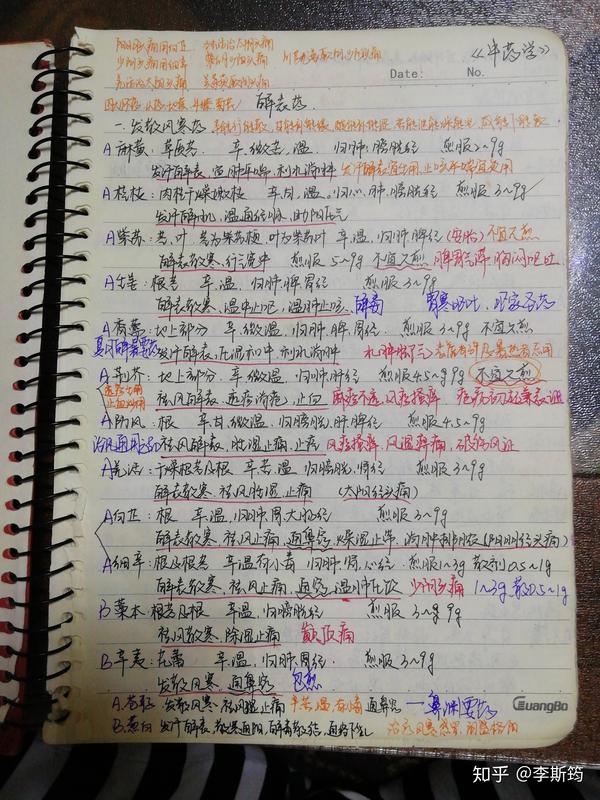 《中药学》
阳明头痛用白芷 羌活治太阳头痛
少阴头痛用细辛
Date: No.
解表药
一、发散风寒药
A 麻黄:草质茎 辛、微苦,温 归肺膀胱经 煎服2~9g
发汗解表,宣肺平喘,利水消肿 发汗解表宜生用,止咳平喘宜炙用
A 桂枝:肉桂干燥嫩枝 辛、甘,温。归心、肺、膀胱经 煎服3~9g
发汗解肌,温通经脉,助阳化气
A 紫苏:茎、叶 茎为紫苏梗,叶为紫苏叶 辛温,归肺脾经(安胎)不宜久煎
解表散寒,行气宽中 煎服5~9g 不宜久煎 脾胃气滞 胸闷呕吐
A 生姜:根茎 辛,温 归肺脾胃经 煎服3~9g
解表散寒,温中止呕,温肺止咳、解毒 胃寒呕吐,呕家圣药
A 香薷:地上部分 辛,微温,归肺、脾、胃经 煎服3~9g 不宜久煎
夏月解表要药 发汗解表,化湿和中,利水消肿
A 荆芥:地上部分 辛,微温,归肺肝经 煎服4.5~9g 不宜久煎
祛风解表,透疹消疮,止血 麻疹不透,风疹瘙痒 疮疡初起兼表证
A 防风:根 辛、甘,微温,归膀胱、肝脾经 煎服4.5~9g
治风通用药 祛风解表,胜湿止痛,止痉 风疹瘙痒,风湿痹痛,破伤风证
A 羌活:干燥根茎及根 辛、苦,温 归膀胱,肾经 煎服3~9g
解表散寒,祛风胜湿,止痛 (太阳经头痛)
A 白芷:根 辛温,归肺胃大肠经 煎服3~9g
解表散寒,祛风止痛,通鼻窍,燥湿止带,消肿排脓(阳明经头痛)
A 细辛:根及根茎 辛温有小毒 归肺肾、心经 煎服1~3g 散剂0.5~1g
解表散寒,祛风止痛,通窍,温肺化饮 少阴头痛 1~3g 散0.5~1g
B 藁本:根茎及根 辛温,归膀胱经 煎服3~9g
祛风散寒,除湿止痛 巅顶痛
B 辛夷:花蕾 辛,温,归肺、胃经 煎服3~9g
发散风寒,通鼻窍 包煎
A 苍耳 发散风寒,祛风湿止痛 辛苦,温,有毒 通鼻窍 — 鼻渊要药
B 葱白 发汗解表,散寒通阳,解毒散结
GuangBo
知乎 @李斯筠